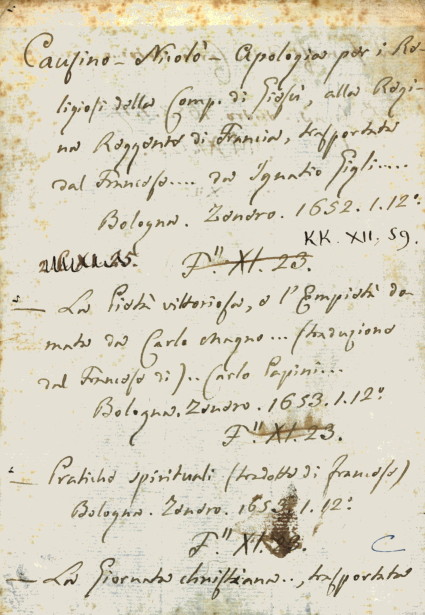 Causino – Nicolò – Apologia per i Re-
ligiosi della Comp. di Giesù, alla Regi-
na Reggente di Francia, trasportata
dal Francese.... da Ignatio Gigli....
Bologna. Zenero. 1652. 1. 12º.
KK. XII, 59.
F." XI. 23.
— La Pietà vittoriosa, e l'Empietà do-
mata da Carlo Magno... (traduzione
dal Francese di).. Carlo Papini...
Bologna. Zenero. 1653. 1. 12º
F." XI. 23.
— Pratiche spirituali (tradotte di francese)
Bologna. Zenero. 1653. 1. 12º
F." XI.
C
— La Giornata christiana.., trasportata